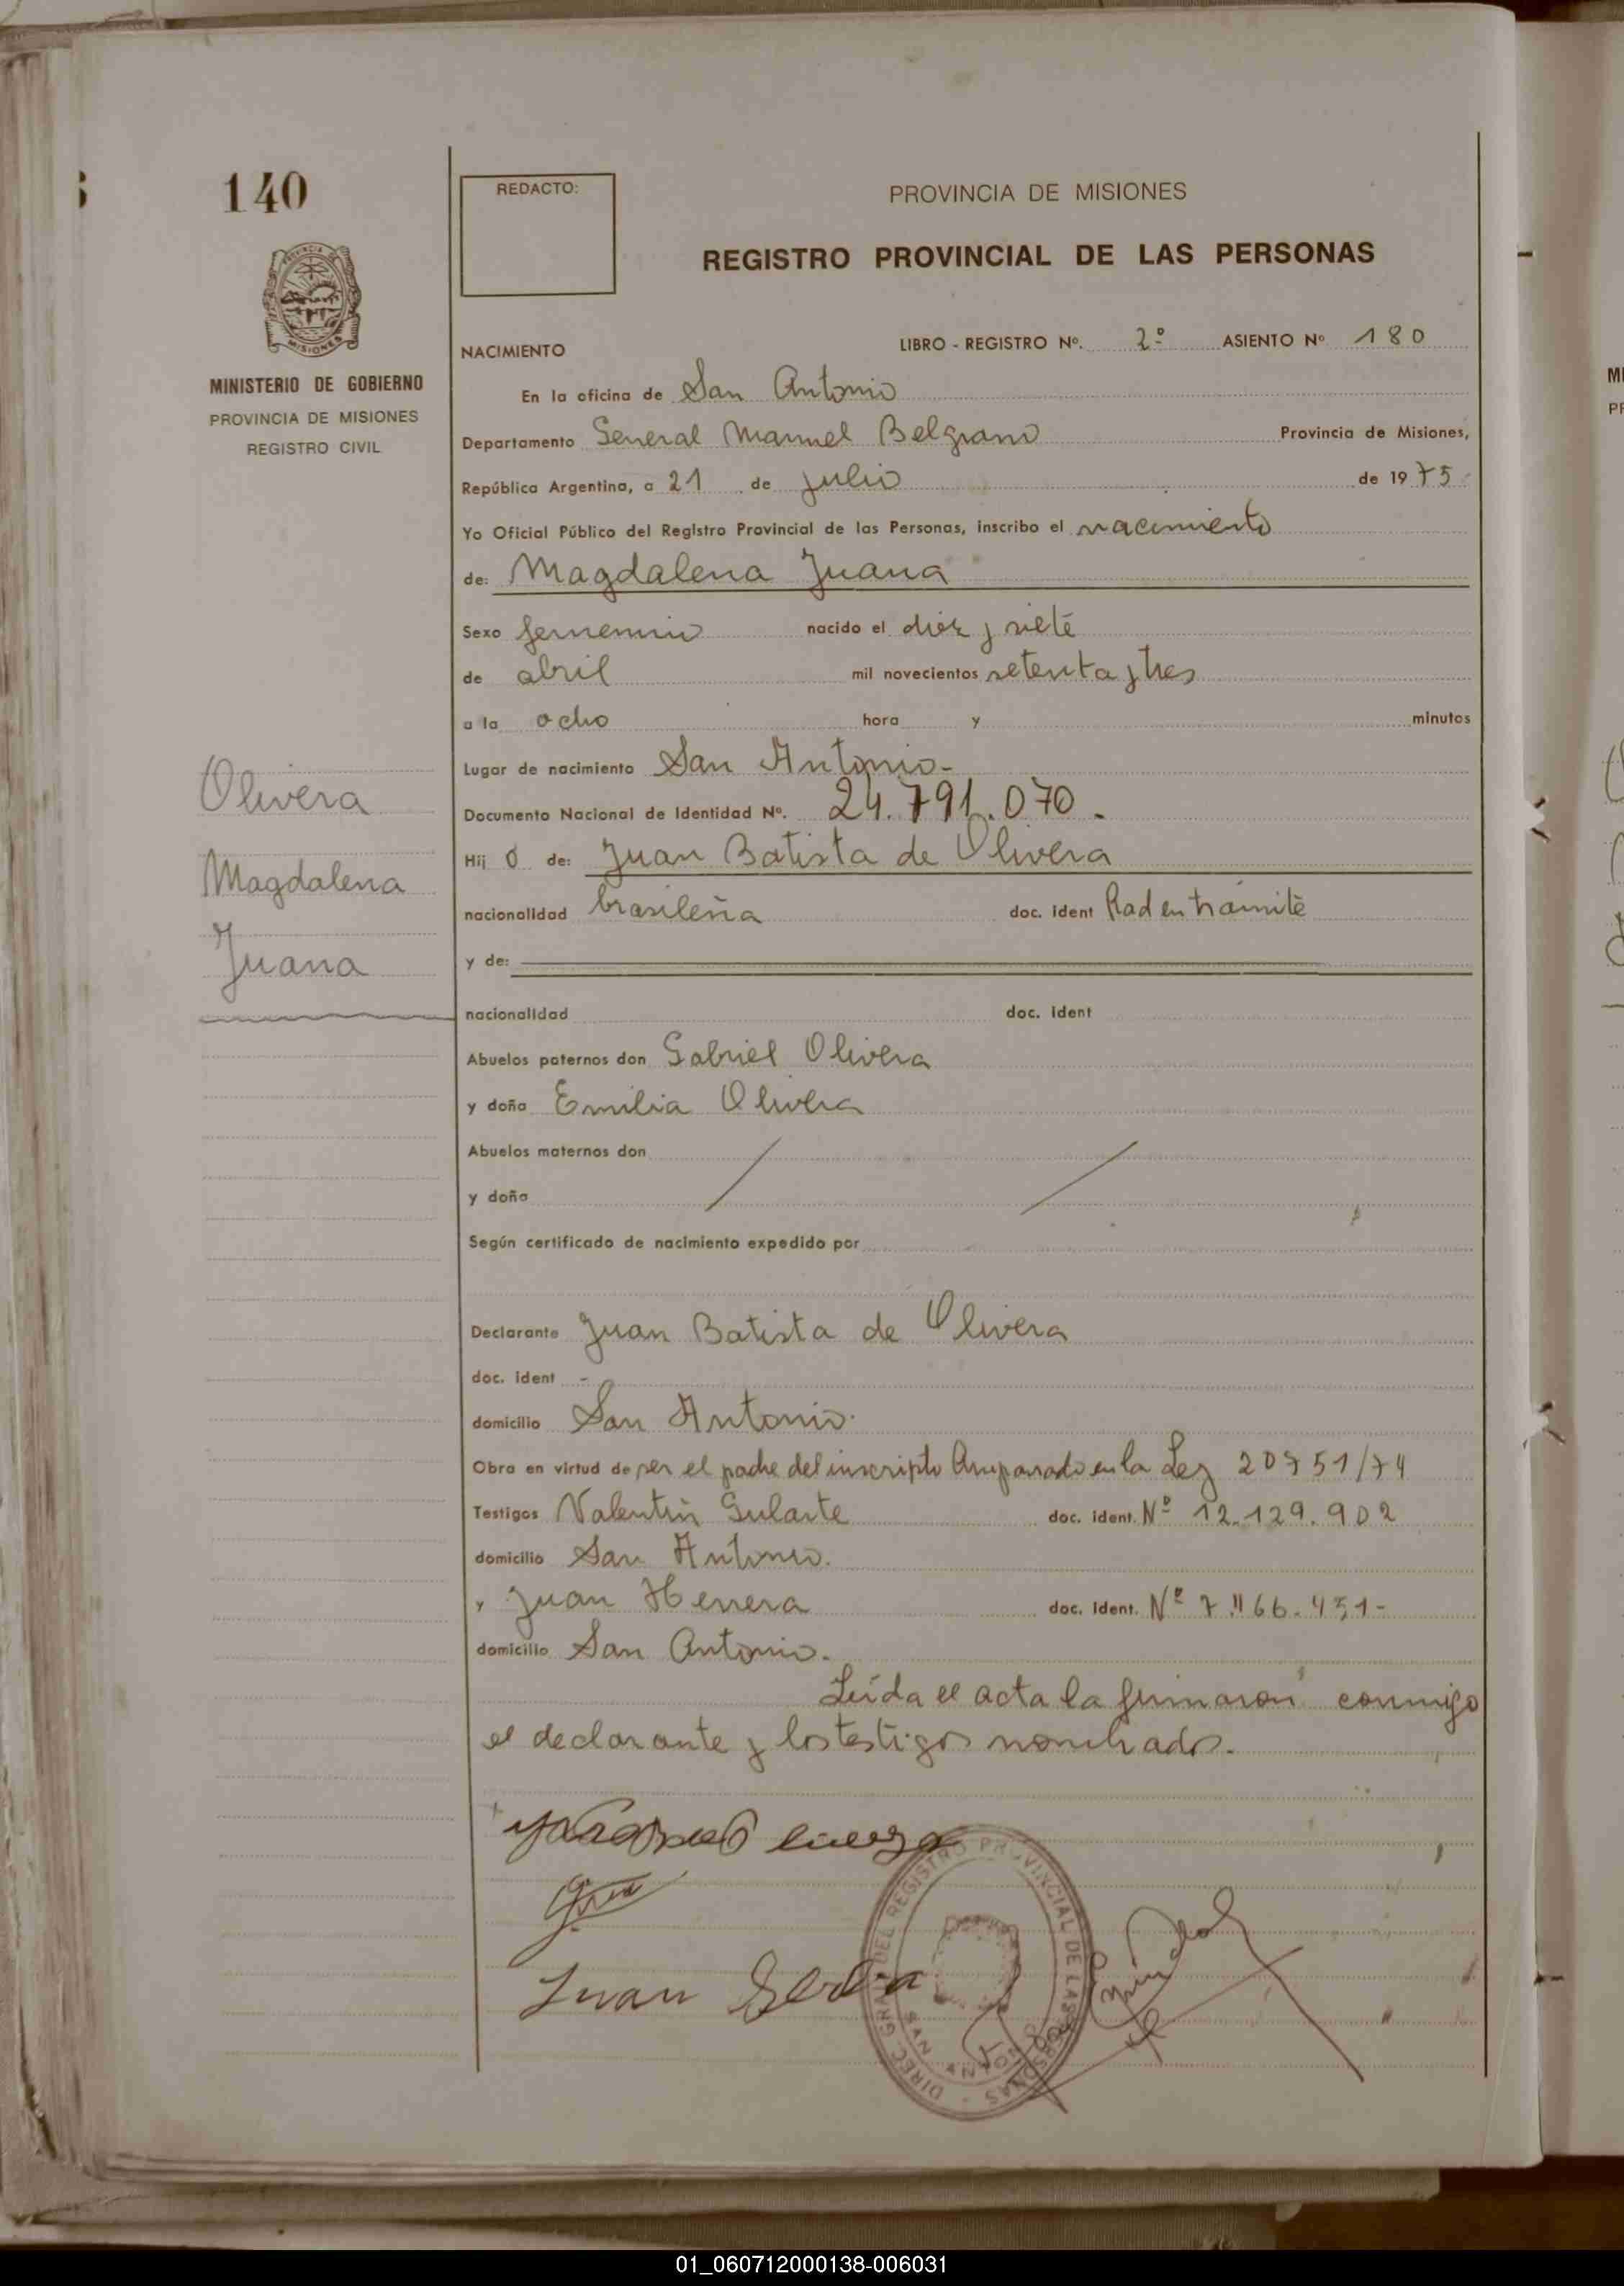 140
REDACTO:
PROVINCIA DE MISIONES
REGISTRO PROVINCIAL DE LAS PERSONAS
MINISTERIO DE GOBIERNO
PROVINCIA DE MISIONES
REGISTRO CIVIL
NACIMIENTO
LIBRO - REGISTRO Nº. 2º ASIENTO Nº 180
En la oficina de San Antonio
Departamento General Manuel Belgrano Provincia de Misiones,
República Argentina, a 21 de julio de 1975
Yo Oficial Público del Registro Provincial de las Personas, inscribo el nacimiento
de: Magdalena Juana
Sexo femenino nacido el diez y siete
de abril mil novecientos setenta y tres
a la ocho hora y minutos
Lugar de nacimiento San Antonio-
Documento Nacional de Identidad Nº. 24.791.070.
Hij o de: Juan Batista de Olivera
nacionalidad brasileña doc. ident Rad en trámite
y de:
nacionalidad doc. ident
Abuelos paternos don Gabriel Olivera
y doña Emilia Olivera
Abuelos maternos don
y doña
Según certificado de nacimiento expedido por
Declarante Juan Batista de Olivera
doc. ident -
domicilio San Antonio.
Obra en virtud de ser el padre del inscripto Amparado en la Ley 20751/74
Testigos Valentin Gularte doc. ident. Nº 12.129.902
domicilio San Antonio.
y Juan Herrera doc. ident. Nº 7.466.451-
domicilio San Antonio.
Leída el acta la firmaron conmigo
el declarante y los testigos nombrados.
Olivera
Magdalena
Juana
Juan
DIREC. GRAL. DEL REGISTRO PROVINCIAL DE LAS PERSONAS
SAN ANTONIO
01_060712000138-006031